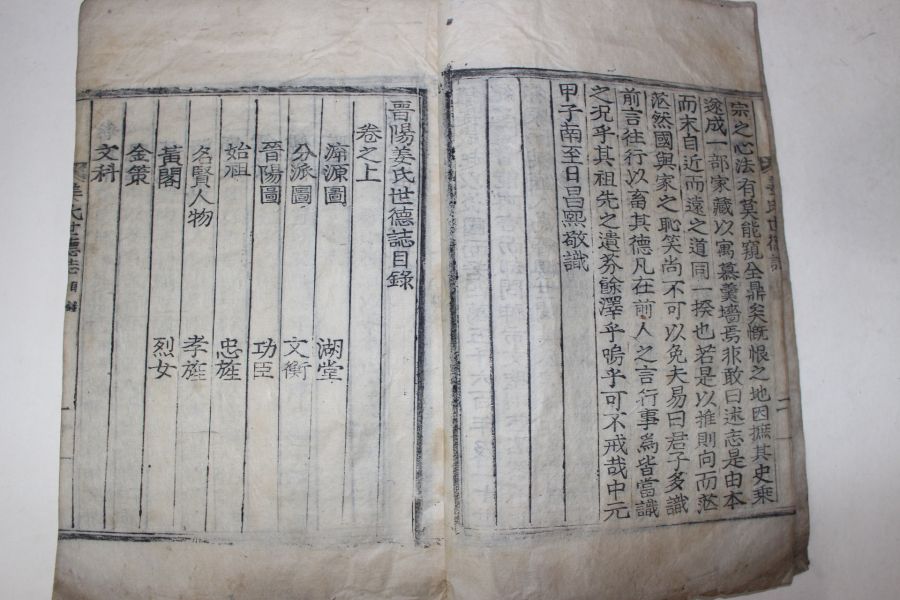 宗之心法有莫能窺全鼎矣慨恨之地因摭其史乘
遂成一部家藏以寓慕羹墻焉非敢曰述志是由本
而末自近而遠之道同一揆也若是以推則向而茫
茫然國與家之恥笑尚不可以免夫易曰君子多識
前言往行以畜其德凡在前人之言行事爲皆當識
之況乎其祖先之遺芬餘澤乎嗚乎可不戒哉中元
甲子南至日昌熙敬識
晉陽姜氏世德誌目錄
卷之上
溯源圖 湖堂
分派圖 文衡
晉陽圖 功臣
始祖 忠旌
名賢人物 孝旌
黃閣 烈女
金策
文科
姜氏世德誌 目錄 一